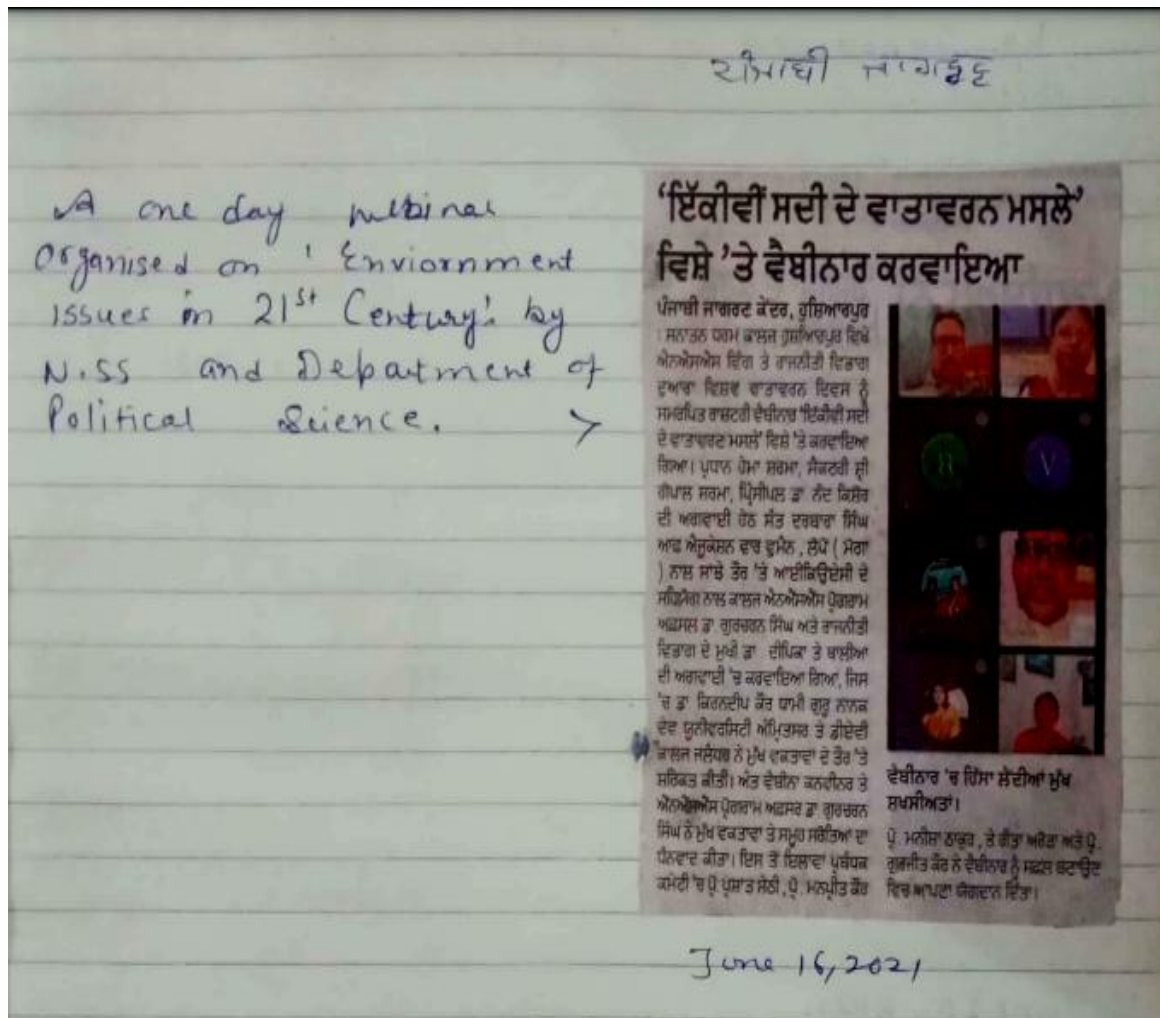 ਪੰਜਾਬੀ ਜਾਗਰਣ
A one day webinar
Organised on 'Enviornment
issues in 21st Century'. by
N.SS and Department of
Political Science. >
'ਇੱਕੀਵੀਂ ਸਦੀ ਦੇ ਵਾਤਾਵਰਨ ਮਸਲੇ'
ਵਿਸ਼ੇ 'ਤੇ ਵੈਬੀਨਾਰ ਕਰਵਾਇਆ
ਪੰਜਾਬੀ ਜਾਗਰਣ ਕੇਂਦਰ, ਹੁਸ਼ਿਆਰਪੁਰ
: ਸਨਾਤਨ ਧਰਮ ਕਾਲਜ ਹੁਸ਼ਿਆਰਪੁਰ ਵਿਖੇ
ਐਨਐਸਐਸ ਵਿੰਗ ਤੇ ਰਾਜਨੀਤੀ ਵਿਭਾਗ
ਦੁਆਰਾ ਵਿਸ਼ਵ ਵਾਤਾਵਰਨ ਦਿਵਸ ਨੂੰ
ਸਮਰਪਿਤ ਰਾਸ਼ਟਰੀ ਵੈਬੀਨਾਰ 'ਇੱਕੀਵੀਂ ਸਦੀ
ਦੇ ਵਾਤਾਵਰਣ ਮਸਲੇ' ਵਿਸ਼ੇ 'ਤੇ ਕਰਵਾਇਆ
ਗਿਆ। ਪ੍ਰਧਾਨ ਹੇਮਾ ਸ਼ਰਮਾ, ਸੈਕਟਰੀ ਸ਼੍ਰੀ
ਗੋਪਾਲ ਸ਼ਰਮਾ, ਪ੍ਰਿੰਸੀਪਲ ਡਾ. ਨੰਦ ਕਿਸ਼ੋਰ
ਦੀ ਅਗਵਾਈ ਹੇਠ ਸੰਤ ਦਰਬਾਰਾ ਸਿੰਘ
ਆਫ ਐਜੂਕੇਸ਼ਨ ਫਾਰ ਵੂਮੈਨ, ਲੋਪੋ ( ਮੋਗਾ
) ਨਾਲ ਸਾਂਝੇ ਤੌਰ 'ਤੇ ਆਈਕਿਉਏਸੀ ਦੇ
ਸਹਿਯੋਗ ਨਾਲ ਕਾਲਜ ਐਨਐਸਐਸ ਪ੍ਰੋਗਰਾਮ
ਅਫ਼ਸਰ ਡਾ. ਗੁਰਚਰਨ ਸਿੰਘ ਅਤੇ ਰਾਜਨੀਤੀ
ਵਿਭਾਗ ਦੇ ਮੁਖੀ ਡਾ. ਦੀਪਿਕਾ ਤੇ ਬਾਲੀਆ
ਦੀ ਅਗਵਾਈ 'ਚ ਕਰਵਾਇਆ ਗਿਆ, ਜਿਸ
'ਚ ਡਾ. ਕਿਰਨਦੀਪ ਕੌਰ ਧਾਮੀ ਗੁਰੂ ਨਾਨਕ
ਦੇਵ ਯੂਨੀਵਰਸਿਟੀ ਅੰਮ੍ਰਿਤਸਰ ਤੇ ਡੀਏਵੀ
ਕਾਲਜ ਜਲੰਧਰ ਨੇ ਮੁੱਖ ਵਕਤਾਵਾਂ ਦੇ ਤੌਰ 'ਤੇ
ਸ਼ਿਰਕਤ ਕੀਤੀ। ਅੰਤ ਵੈਬੀਨਾ ਕਨਵੀਨਰ ਤੇ
ਐਨਐਸਐਸ ਪ੍ਰੋਗਰਾਮ ਅਫ਼ਸਰ ਡਾ. ਗੁਰਚਰਨ
ਸਿੰਘ ਨੇ ਮੁੱਖ ਵਕਤਾਵਾਂ ਤੇ ਸਮੂਹ ਸਰੋਤਿਆਂ ਦਾ
ਧੰਨਵਾਦ ਕੀਤਾ। ਇਸ ਤੋਂ ਇਲਾਵਾ ਪ੍ਰਬੰਧਕ
ਕਮੇਟੀ 'ਚ ਪ੍ਰੋ. ਪ੍ਰਸ਼ਾਂਤ ਸੇਠੀ, ਪ੍ਰੋ. ਮਨਪ੍ਰੀਤ ਕੌਰ
H
V
ਵੈਬੀਨਾਰ 'ਚ ਹਿੱਸਾ ਲੈਂਦੀਆਂ ਮੁੱਖ
ਸ਼ਖਸੀਅਤਾਂ।
ਪ੍ਰੋ. ਮਨੀਸ਼ਾ ਠਾਕੁਰ, ਤੇ ਰੀਤਾ ਅਰੋੜਾ ਅਤੇ ਪ੍ਰੋ.
ਗੁਰਜੀਤ ਕੌਰ ਨੇ ਵੈਬੀਨਾਰ ਨੂੰ ਸਫ਼ਲ ਬਣਾਉਣ
ਵਿਚ ਆਪਣਾ ਯੋਗਦਾਨ ਦਿੱਤਾ।
June 16, 2021